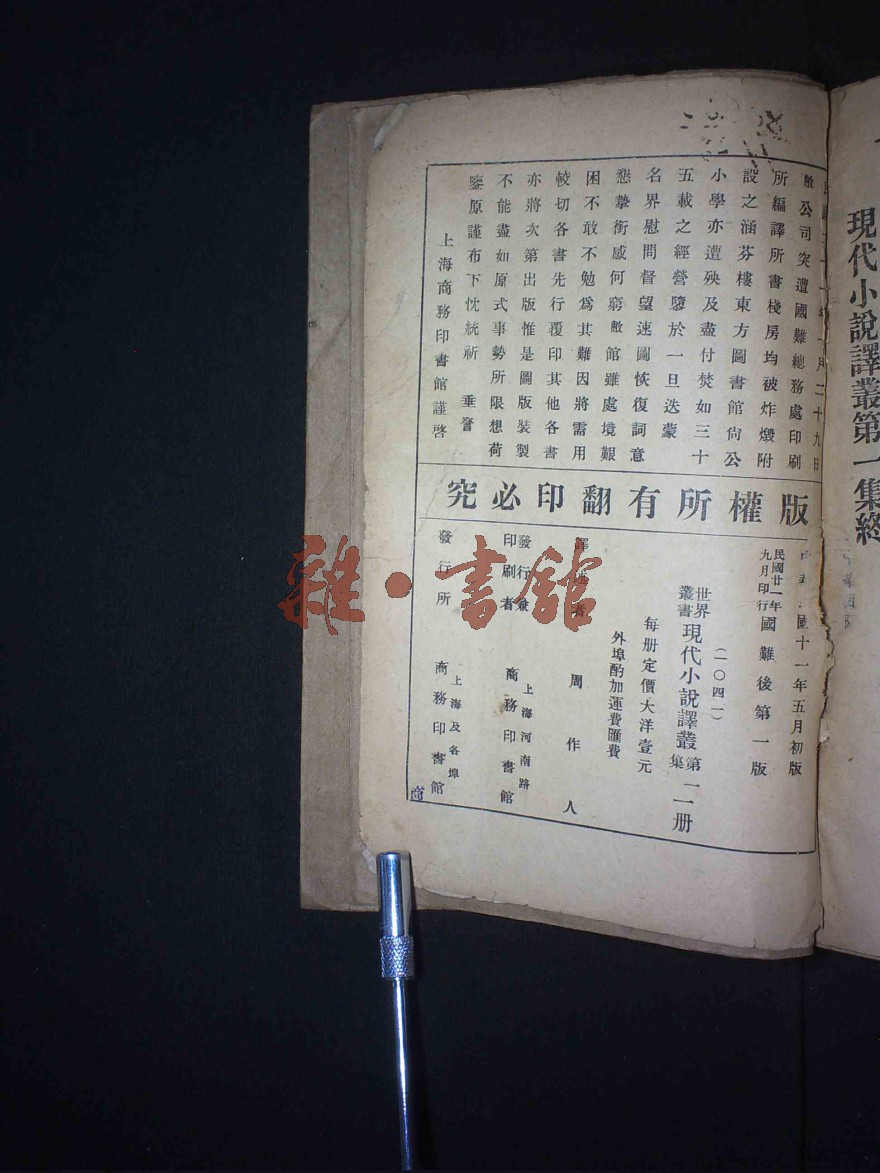 現代小說譯叢第一集終
月二十九日
敝公司突遭國難總務處印刷
所編譯所書棧房均被炸燬附
設之涵芬樓東方圖書館尙公
小學亦遭殃及盡付焚如三十
五載之經營隳於一旦迭蒙
各界慰問督望速圖恢復詞意
懇摯銜感何窮敝館雖處境艱
困不敢不勉爲其難因將需用
較切各書先行覆印其他各書
亦將次第出版惟是圖版裝製
不能盡如原式事勢所限想荷
鑒原謹布下忱統祈 垂詧
上海商務印書館謹啓
版權所有翻印必究
國十一年五月初版
民國廿一年
九月印行
國難後第一版
(一〇四二)
世界
叢書
現代小說譯叢
第一集
一册
每册定價大洋壹元
外埠酌加運費匯費
譯述者 周作人
發行兼
印刷者
上海河南路
商務印書館
發行所
上海及各埠
商務印書館
商
雜·書館